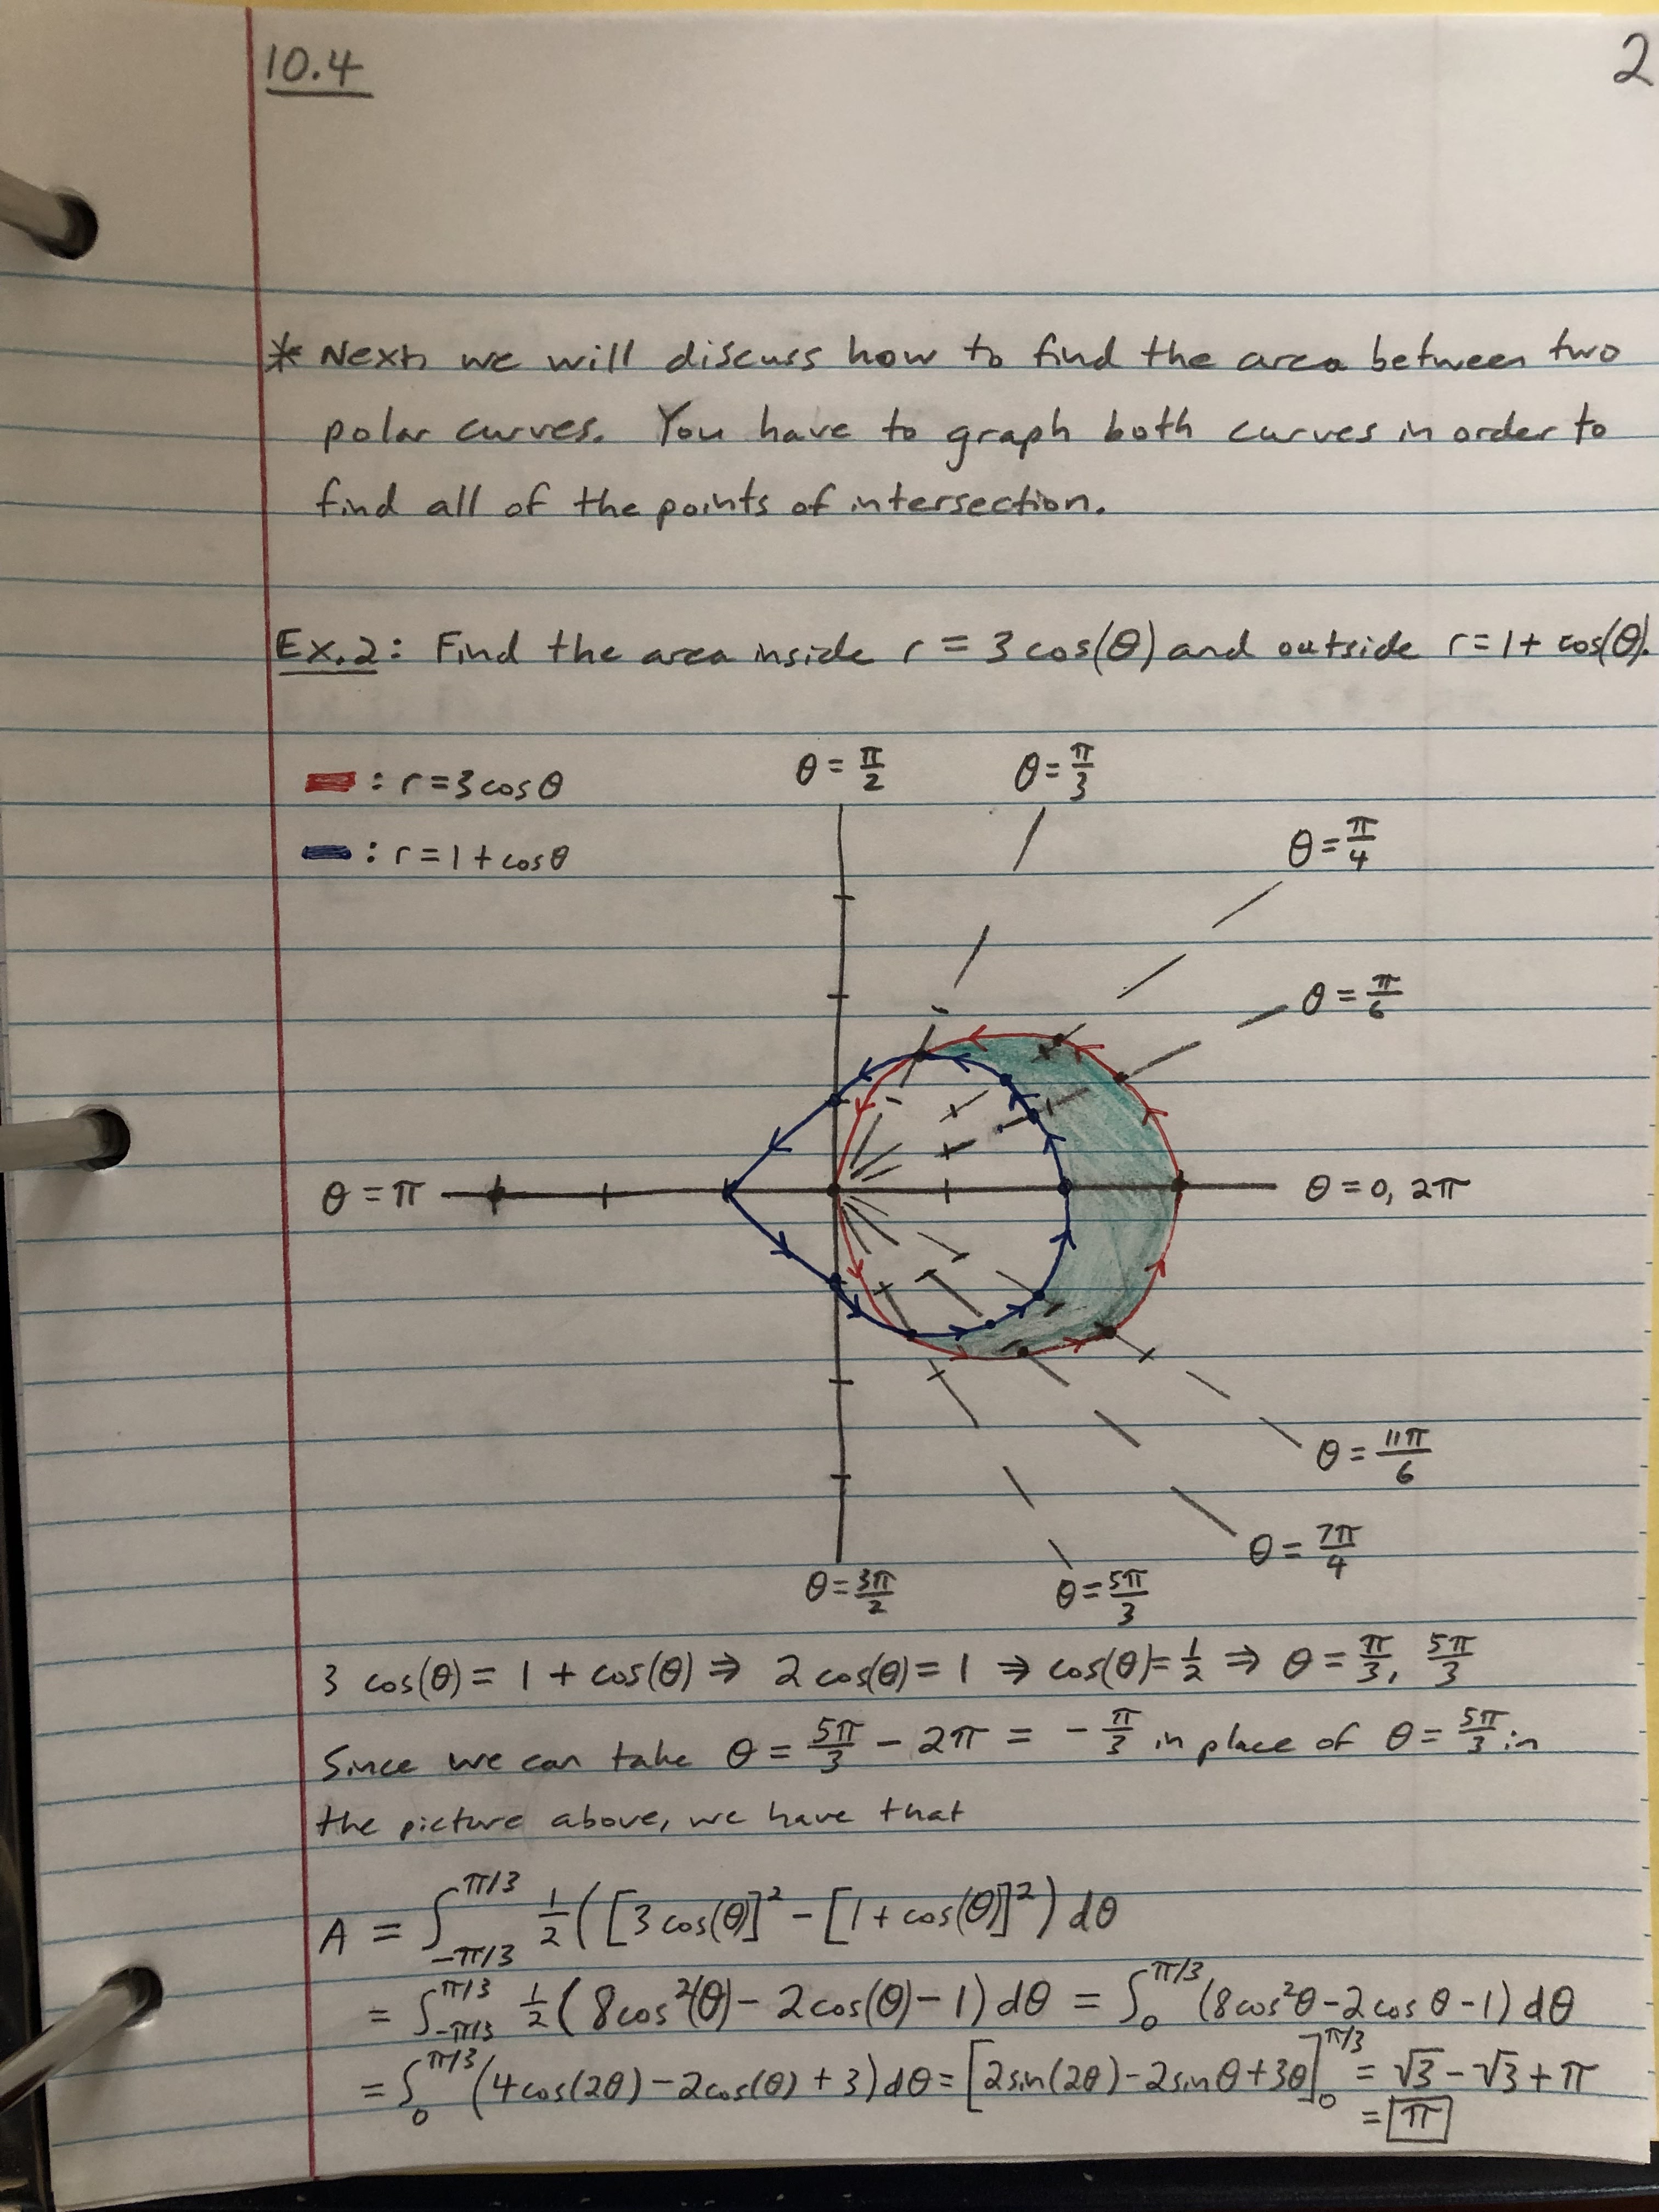 10.4
2
* Next, we will discuss how to find the area between two
polar curves. You have to graph both curves in order to
find all of the points of intersection.
Ex.2: Find the area inside r = 3 cos(θ) and outside r = 1 + cos(θ).
: r = 3 cos θ
: r = 1 + cos θ
θ = π/2
θ = π/3
θ = π/4
θ = π/6
θ = π
θ = 0, 2π
θ = 11π/6
θ = 7π/4
θ = 3π/2
θ = 5π/3
3 cos(θ) = 1 + cos(θ) ⇒ 2 cos(θ) = 1 ⇒ cos(θ) = 1/2 ⇒ θ = π/3, 5π/3
Since we can take θ = 5π/3 − 2π = − π/3 in place of θ = 5π/3 in
the picture above, we have that
A = ∫_{−π/3}^{π/3} 1/2 ([3 cos(θ)]² − [1 + cos(θ)]²) dθ
= ∫_{−π/3}^{π/3} 1/2 (8 cos²(θ) − 2 cos(θ) − 1) dθ = ∫_0^{π/3} (8 cos²θ − 2 cos θ − 1) dθ
= ∫_0^{π/3} (4 cos(2θ) − 2 cos(θ) + 3) dθ = [2 sin(2θ) − 2 sin θ + 3θ]_0^{π/3} = √3 − √3 + π
= π